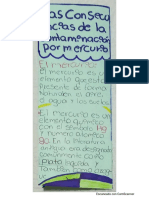 as Consecu
ncias de la
ontaminación
por mercurio
El mercurio:
El mercurio es un
elemento que está
Presente de forma
Naturalen el aire,
el agua y los suelos
El mercurio es un
elemento químico
con el símbolo Hg
y número atómico
80 En la literatura
antigua era designado
comúnmente como
Plata líquida y
También como
Escaneado con CamScanner